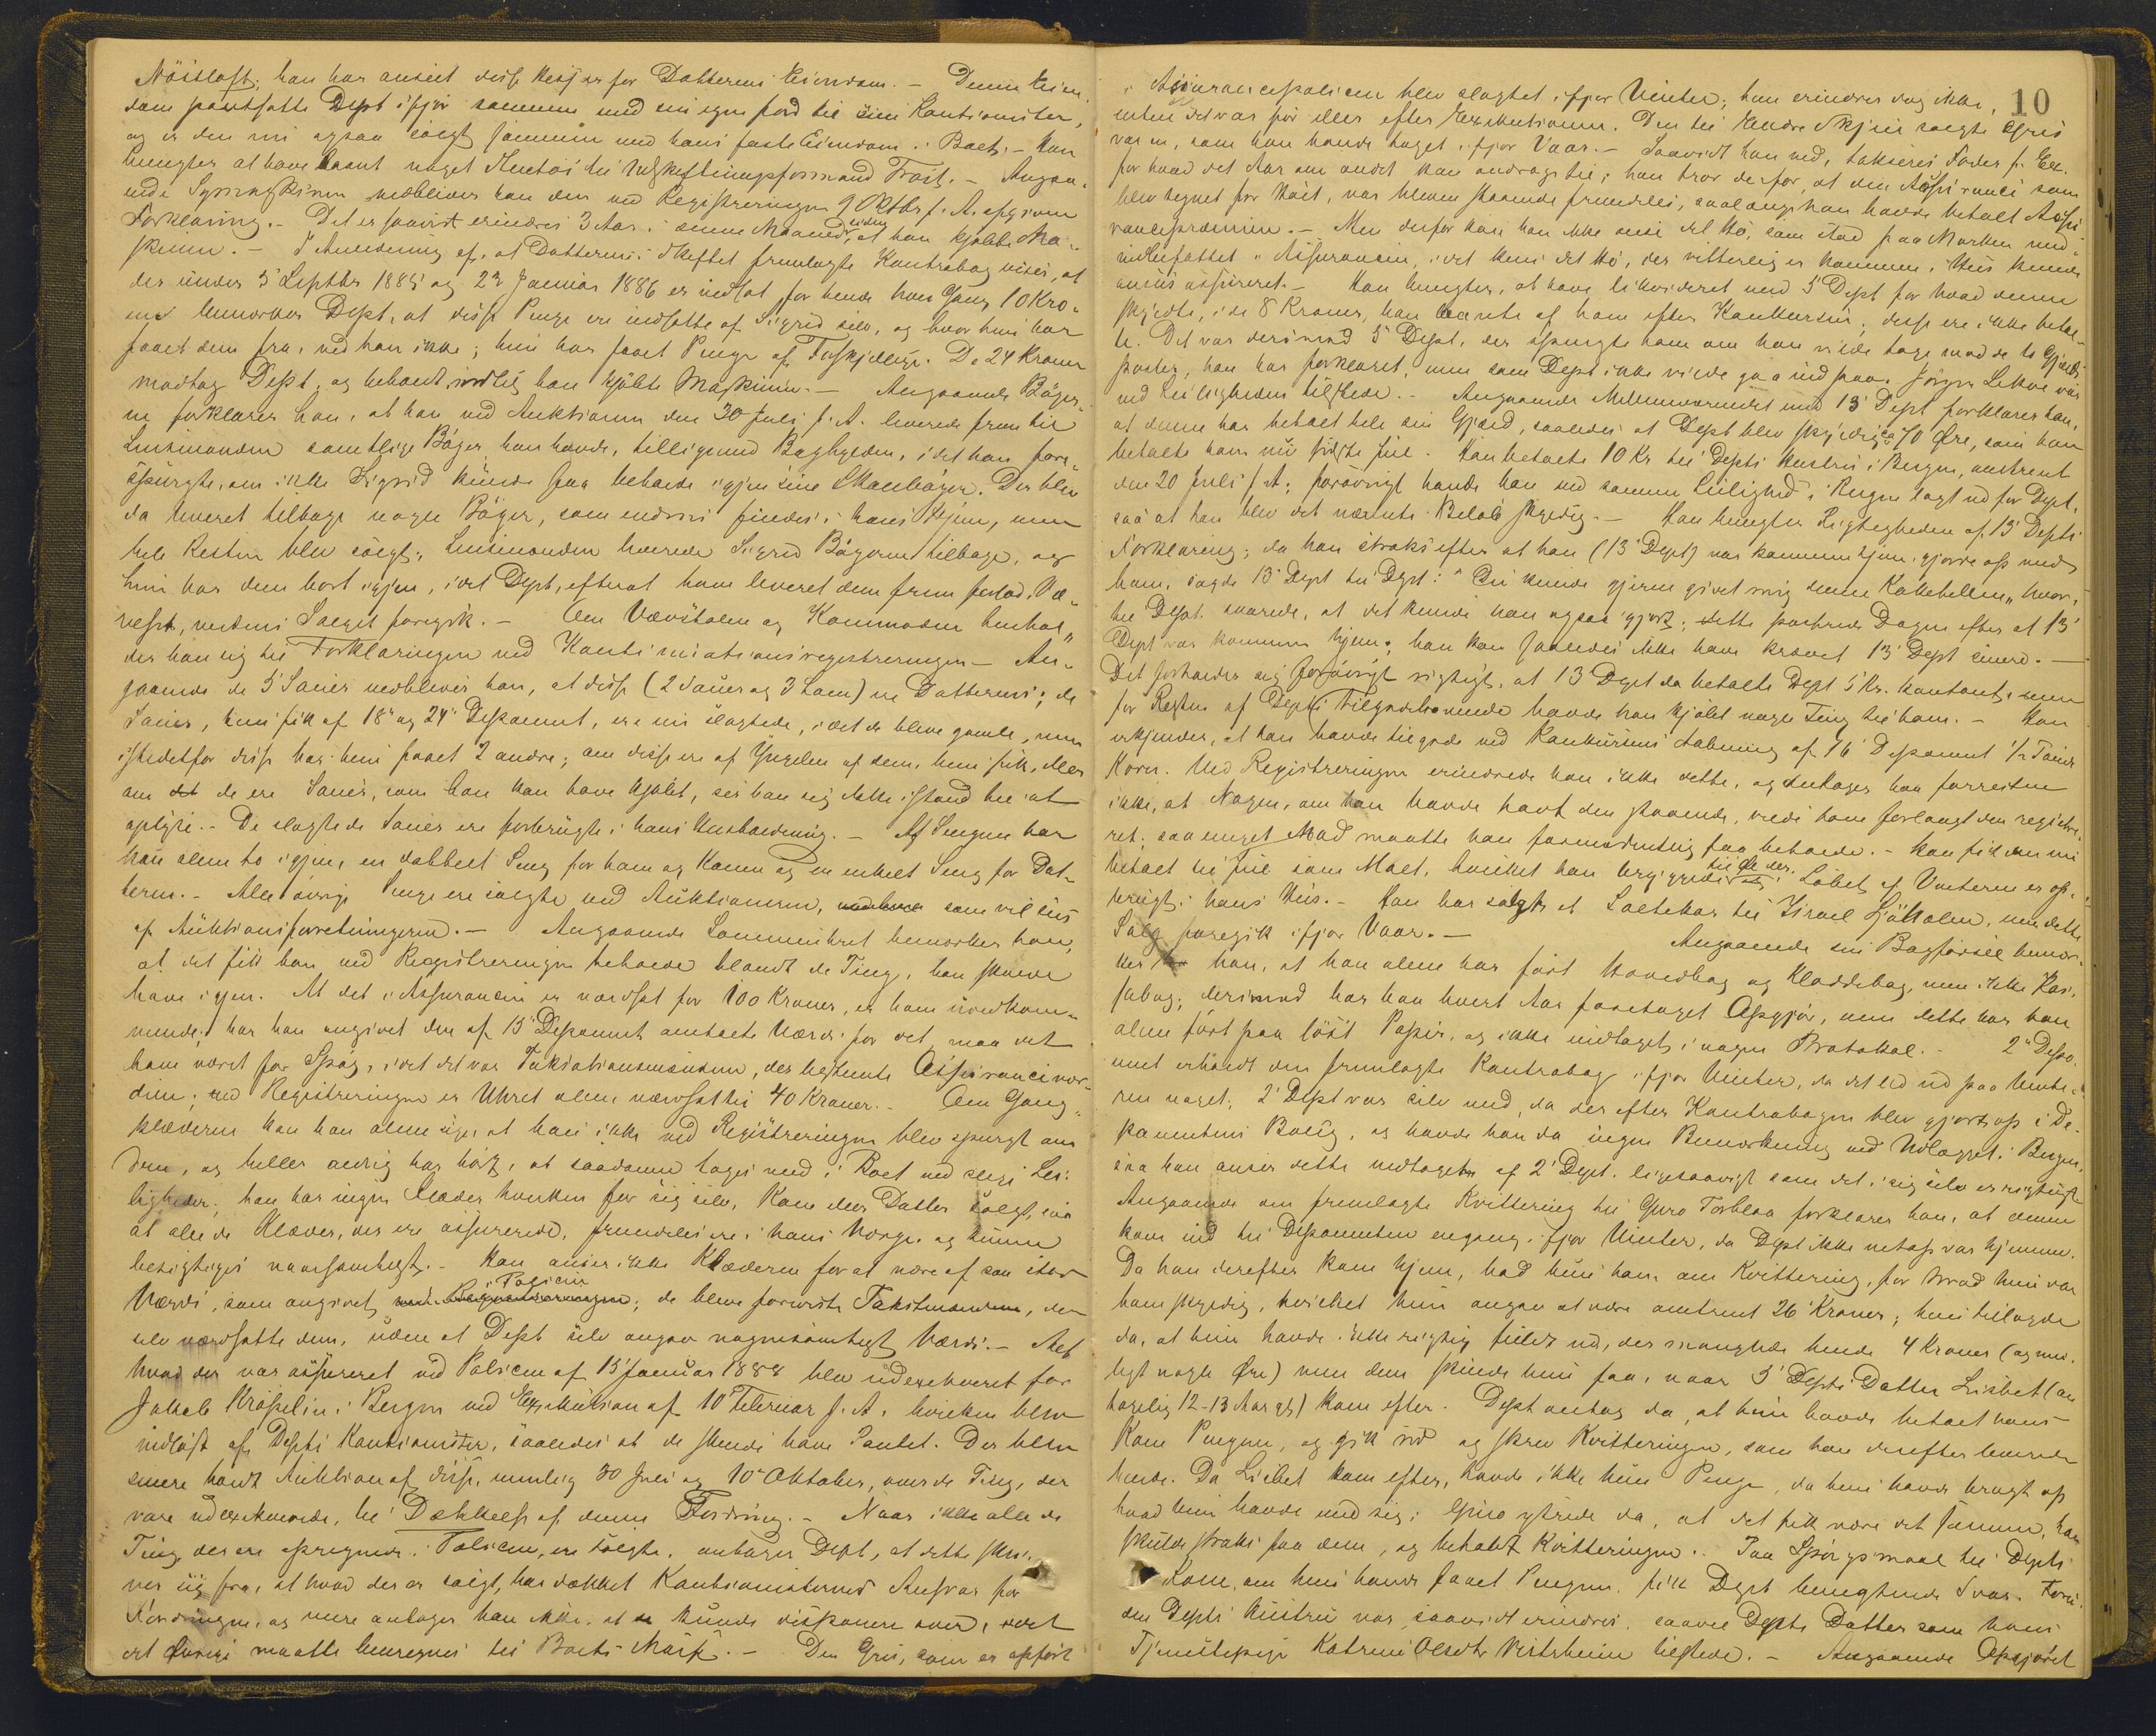 Nöistloft; han har anseet disse Reisf er for Datterens Eiendom. – Denne Eien-
dom pantsatte Dept ifjor sammen med sin egen Jord til sine Kautionister,
og er den nu ogsaa solgt sammen med hans faste Eiendom. Boets. – Han
benegter at have laant noget til Udskiftningsformand – Angaa-
ende Symaskinen vedbliver han den ved Registreringen 9 Oktbr f. A. afgivne
Forklaring. – Det er saavidt erindres 3 Aar i denne Maaned siden, at han kjöbte Ma-
skinen. – I Anledning af, at Datterens i Skiftet fremlagte Kontrabog viser, at
der under 5 Septbr 1885 og 22 Januar 1886 er indsat for hende hver Gang 10 Kro-
ner bemærker Dept, at disse Penge ere indsatte af Sigrid selv, og hvor hun har
faaet dem fra, ved han ikke; hun har faaet Penge af De 24 Kroner
modtog Dept, og beholdt indtil han kjöbte Maskinen. – Angaaende Böger-
ne forklarer han, at han ved Auktionen den 30 Juli f. A. leverede frem til
Lensmanden samtlige Böger, han havde, tilligemed Boghylden, idet han fore-
spurgte, om ikke Sigrid kunde faa beholde igjen sine Skoleböger. Der blev
da leveret tilbage nogle Böger, som endnu findes i hans Hjem, men
hele Resten blev solgt; Lensmanden leverede Sigrid Bögerne tilbage, og
hun bar dem bort igjen, idet Dept, efterat have leveret dem frem forlod Væ-
relset, medens Salget foregik. – Om Vævstolen og Kommoden henhol-
der han sig til Forklaringen ved Kontinuationsregistreringen – An-
gaaende de 5 Sauer vedbliver han, at disse (2 Sauer og 3 Lam) er Datterens; de
Sauer, hun fik af 18de og 24de Deponent, ere nu slagtede, idet de bleve gamle, men
istedetfor disse har hun faaet 2 andre; om disse ere af Yngelen af dem, hun fik, eller
om de ere Sauer, som han kan have kjöbt, ser han sig ikke istand til at
oplyse. – De slagtede Sauer ere forbrugte i hans Husholdning. – Af Sengene har
han alene to igjen, en dobbelt Seng for ham og Konen og en enkelt Seng for Dat-
teren. – Alle övrige Senge ere solgte ved Auktionerne, som vil sees
af Auktionsforretningerne. – Angaaende Lommeuhret bemærker han,
at det fik han ved Registreringen beholde blandt de Ting, han skulde
have igjen. At det i Assurancen er værdsat for 100 Kroner, er ham uvedkom-
mende; har han angivet den af 15de Deponent omtalte Værdi for det, maa det
have været for Spög, idet det var Taxationsmændene, der bestemte Assurancevær-
dien; ved Registreringen er Uhret alene værdsat til 40 Kroner. – Om Gang-
klæderne kan han alene sige, at han ikke ved Registreringen blev spurgt om
dem, og heller aldrig har hört, at saadanne tages med i Boet ved slige Lei-
ligheder; han har ingen Klæder hverken for sig selv, Kone eller Datter solgt, saa
at alle de Klæder, der ere assurerede, fremdeles ere i hans Værge og kunne
besigtiges naarsomhelst. – Han anser ikke Klæderne for at være af saa stor
Værdi, som angivet i Policen; de bleve forviste Takstmændene, der
selv værdsatte dem, uden at Dept selv angav nogensomhelst Værdi. – Alt
hvad der var assureret ved Policen af 15 Januar 1888 blev udexekveret for
Jakob Kröpelin i Bergen ved Exekution af 10 Februar f. A. hvilken blev
indlöst af Depts Kautionister, saaledes at de skulde have Pantet. Der blev
senere holdt Auktion af disse, nemlig 30 Juli og 10de Oktober, over de Ting, der
vare udexekverede, til Dækkelse af denne Fordring. – Naar ikke alle de
Ting, der ere opregnede i Policen, ere solgte, antager Dept, at dette skri-
ver sig fra, at hvad der er solgt, har dækket Kautionisternes Ansvar for
Fordringen, og mere antager han ikke, at de kunde disponere over, idet
det övrige maatte henregnes til Boets Masse. – Den Gris, som er opfört
10
i Assurancepolicen blev slagtet ifjor Vinter; han erindrer dog ikke,
enten det var för eller efter Exekutionen. Den til Endre Skjeie solgte Gris
var en, som han havde taget ifjor Vaar. – Saavidt han ved, takseres Foder f. Ex.
for hvad det Aar om andet kan andrage til; han tror derfor, at den Assurance som
blev tegnet for Höet, var bleven staaende fremdeles, saalænge han havde betalt Assu-
rancepræmien. – Men derfor kan han ikke anse det Hö, som stod paa Marken med
indbefattet i Assurancen, idet kun det Hö, der vitterlig er kommen i Hus kunde
ansees assureret. – Han benegter, at have likvideret med 5te Dept for hvad denne
skyldte, i de 8 Kroner, han laante af ham efter Konkursen; disse ere ikke betal-
te. Det var derimod 5te Dept, der spurgte ham om han vilde tage mod de to Gjælds-
poster, han har forklaret, men som Dept ikke vilde gaa ind paa. Jörgen Lekve var
ved Leiligheden tilstede. – Angaaende Mellemværendet med 13de Dept forklarer han,
at denne har betalt hele sin Gjæld, saaledes at Dept blev skyldig 70 Öre, som han
betalte ham nu sidste Jul. Han betalte 10 Kr til Depts Hustru i Bergen, omtrent
den 20 Juli f. A.; forövrigt havde han ved samme Leilighed i Bergen lagt ud for Dept,
saa at han blev det nævnte Belöb skyldig. – Han benegter Rigtigheden af 13de Depts
Forklaring; da han straks efter at han (13de Dept) var kommen hjem, gjorde op med
ham, sagde 13de Dept til Dept: "Du kunde gjerne givet mig denne Kakkelovn" hvor-
til Dept. svarede, at det kunde han ogsaa gjort; dette passerede Dagen efter at 13de
Dept var kommen hjem; han kan saaledes ikke have krævet 13de Dept senere. –
Det forholder sig forövrigt rigtigt, at 13 Dept da betalte Dept 5 Kr. kontant, men
for Resten af Depts Tilgodehavende havde han kjöbt nogle Ting til ham. – Han
erkjender, at han havde tilgode ved Konkursens Aabning af 16de Deponent 1/2 Tönde
Korn. Ved Registreringen erindrede han ikke dette, og antager han forresten
ikke, at Nogen, om han havde havt den staaende, vilde have forlangt den registre-
ret; saa meget Mad maatte han formodentlig faa beholde. – Han fik den nu
betalt til Jul som Malt, hvilket han til Öl der i Löbet af Vinteren er op-
brugt i hans Hus. – Han har solgt et Saltekar til Israel Sjöholm, men dette
Salg foregik ifjor Vaar. – Angaaende sin Bogförsel bemær-
ker han, at han alene har fört Hovedbog og Kladdebog, men ikke Kas-
sabog; derimod har han hvert Aar foretaget Opgjör, men dette har han
alene fört paa löst Papir, og ikke indtaget i nogen Protokol. – 2den Depo-
nent erholdt den fremlagte Kontrabog ifjor Vinter, da det led ud paa Vinte-
ren noget; 2den Dept var selv med, da der efter Kontrabogen blev gjort op i De-
ponentens Bolig, og havde han da ingen Bemærkning ved Udlægget i Bergen,
saa han anser dette vedtaget af 2den Dept. ligesaavist som det i sig selv er rigtigt.
Angaaende den fremlagte Kvittering til Guro Torblaa forklarer han, at denne
kom ind til Deponenten engang ifjor Vinter, da Dept ikke netop var hjemme.
Da han derefter kom hjem, bad hun ham om Kvittering, for hvad hun var
ham skyldig, hvilket hun angav at være omtrent 26 Kroner; hun tilagde
da, at hun havde ikke rigtig fuldt ud, der manglede hende 4 Kroner (og mu-
ligt nogle Öre) men dem skulde hun faa, naar 5te Depts Datter Lisbet (an-
tagelig 12-13 Aar gl) kom efter. Dept antog da, at hun havde betalt hans
Kone Pengene, og gik ind og skrev Kvitteringen, som han derefter leverede
hende. Da Lisbet kom efter, havde ikke hun Penge, da hun havde brugt op
hvad hun havde med sig; Guro yttrede da, at det fik være det samme, han
skulde straks faa dem, og beholdt Kvitteringen. Paa Spörgsmaal til Depts
Kone, om hun havde faaet Pengene, fik Dept benegtende Svar. Foru-
den Depts Hustru var, saavidt erindres, saavel Depts Datter som hans
Tjenestepige Katrine Olsdtr Vestrheim tilstede. – Angaaende Opgjöret